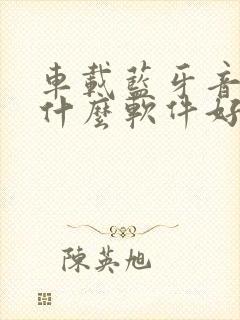 車載藍牙音
什麼軟件好
陳英旭